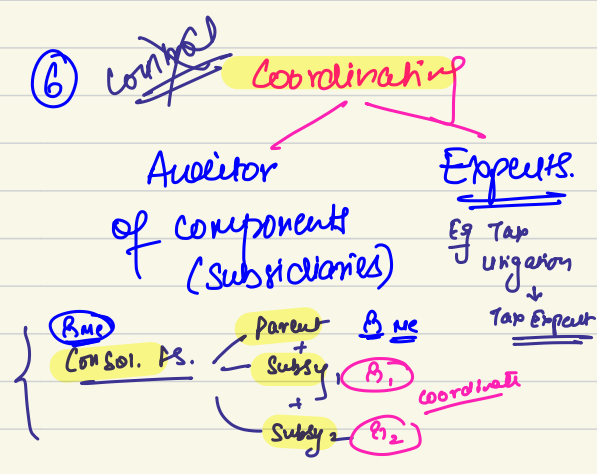 6
Control
Coordinating
Auditor
of components
(Subsidiaries)
Experts.
Eg Tax
Litigation
Tax Expert
Me
Consol. FS.
Parent
Me
+
Subsy 1
+
Subsy 2
Coordinate